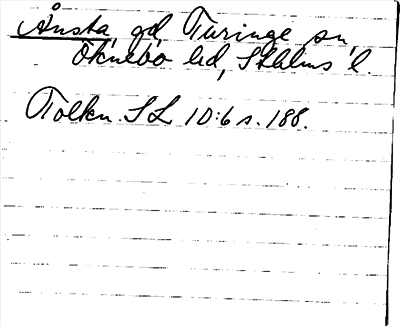 Ånsta, gd, Turinge sn
Öknebo hd, Sthlms l.
Tolkn. SL 10:6 s. 188.